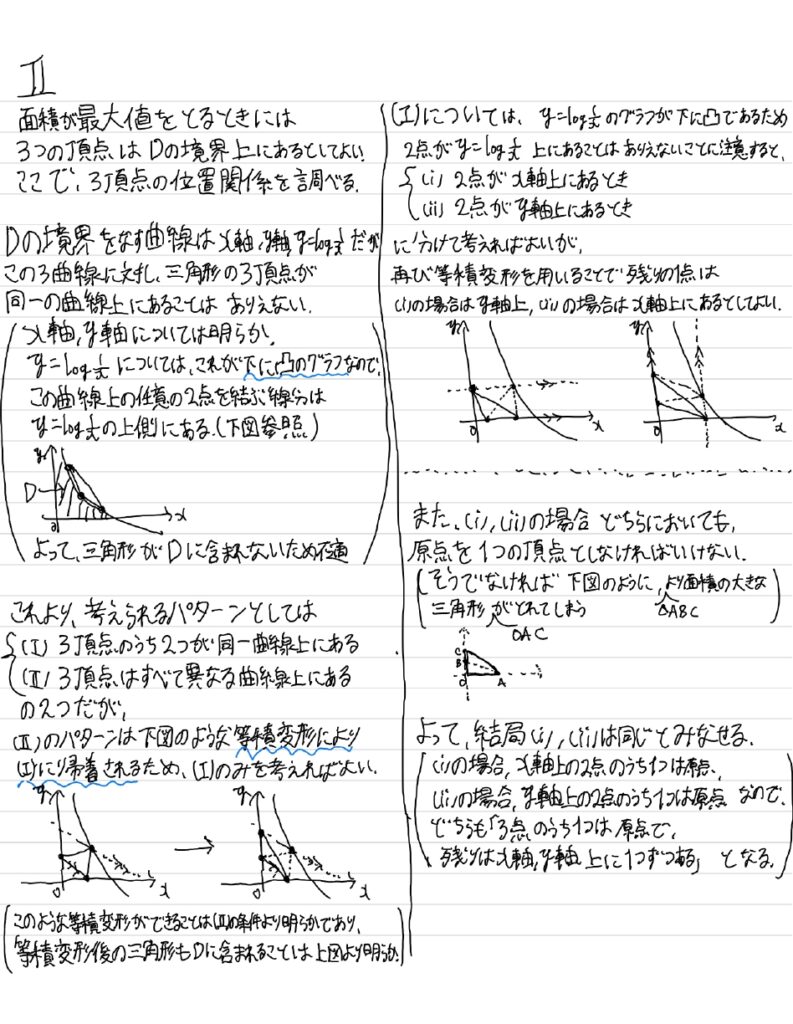 II
面積が最大値をとるときには
3つの頂点はDの境界上にあるとしてよい.
ここで, 3頂点の位置関係を調べる.
Dの境界をなす曲線はx軸, y軸, y=log1/xだが
この3曲線に対し, 三角形の3頂点が
同一の曲線上にあることはありえない.
x軸, y軸については明らか.
y=log1/xについては, これが下に凸のグラフなので,
この曲線上の任意の2点を結ぶ線分は
y=log1/xの上側にある.(下図参照)
y
D
0
x
よって, 三角形がDに含まれないため不適
これより, 考えられるパターンとしては
(I) 3頂点のうち2つが同一曲線上にある
(II) 3頂点はすべて異なる曲線上にある
の2つだが,
(II)のパターンは下図のような等積変形により
(I)に帰着されるため, (I)のみを考えればよい.
y
0
x
y
0
x
このような等積変形ができることは(II)の条件より明らかであり,
等積変形後の三角形もDに含まれることは上図より明らか.
(I)については, y=log1/xのグラフが下に凸であるため
2点がy=log1/x上にあることはありえないことに注意すると,
(i) 2点がx軸上にあるとき
(ii) 2点がy軸上にあるとき
に分けて考えればよいが,
再び等積変形を用いることで残りの1点は
(i)の場合はy軸上, (ii)の場合はx軸上にあるとしてよい.
y
0
x
y
0
x
また, (i), (ii)の場合どちらにおいても,
原点を1つの頂点としなければいけない.
そうでなければ下図のように, より面積の大きな
三角形がとれてしまう
△ABC
OAC
C
B
O
A
よって, 結局(i), (ii)は同じとみなせる.
(i)の場合, x軸上の2点のうち1つは原点,
(ii)の場合, y軸上の2点のうち1つは原点なので,
どちらも「3点のうち1つは原点で,
残りはx軸, y軸上に1つずつある」となる.